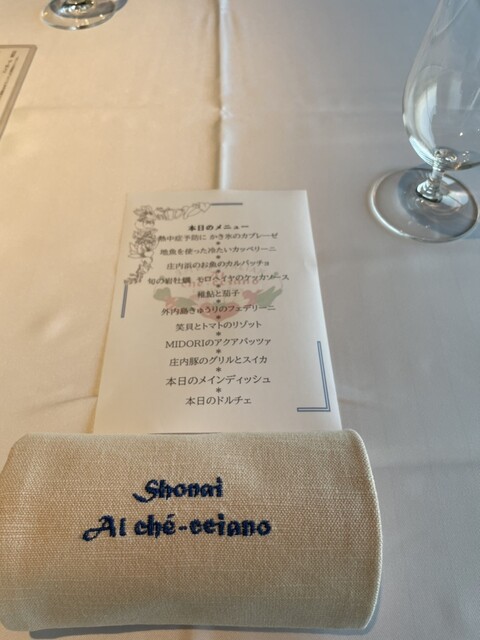 本日のメニュー
熱中症予防に かき氷のカプレーゼ
地魚を使った冷たいカッペリーニ
庄内浜のお魚のカルパッチョ
旬の岩牡蠣 モロヘイヤのケッカソース
稚鮎と茄子
外内島きゅうりのフェデリーニ
笑貝とトマトのリゾット
MIDORIのアクアパッツァ
庄内豚のグリルとスイカ
本日のメインディッシュ
本日のドルチェ
Shonai
Al ché-cciano